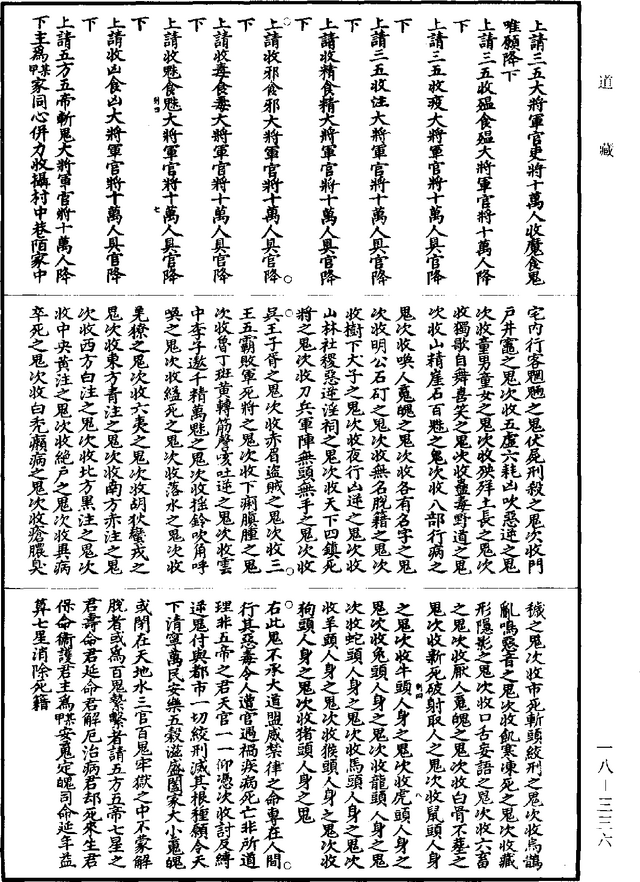 道藏
上請三五大將軍官吏將十萬人收魔食鬼
唯願降下
上請三五收瘟食瘟大將軍官將十萬人降
下
上請三五收疫大將軍官將十萬人具官降
下
上請三五收注大將軍官將十萬人具官降
下
上請收精食精大將軍官將十萬人具官降
下
上請收邪食邪大將軍官將十萬人具官降
下
上請收毒食毒大將軍官將十萬人具官降
下
上請收魅食魅大將軍官將十萬人具官降
下
上請收凶食凶大將軍官將十萬人具官降
下
上請五方五帝斬鬼大將軍官將十萬人降
下主為厶家同心併力收攝村中巷陌家中
宅内行客魍魎之鬼伏屍刑殺之鬼次收門
戶井竈之鬼次收五虛六耗凶吠惡逆之鬼
次收童男童女之鬼次收殃殍土長之鬼次
收獨歌自舞喜笑之鬼次收蠱毒野道之鬼
次收山精崖石百魅之鬼次收八部行病之
鬼次收喚人䰟魄之鬼次收各有名字之鬼
次收明公石矴之鬼次收無名脫籍之鬼次
收樹下大子之鬼次收夜行山逆之鬼次收
山林社稷惡逆淫祠之鬼次收天下四鎮死
將之鬼次收刀兵軍陣無頭無手之鬼次收
兵王子胥之鬼次收赤眉盜賊之鬼次收三
王五霸敗軍死將之鬼次收下痢臌腫之鬼
次收魯丁班黄轉筋瘮咳吐逆之鬼次收雲
中李子遨千精萬魅之鬼次收搖鈴吹角呼
喚之鬼次收縊死之鬼次收落水之鬼次收
羌獠之鬼次收六夷之鬼次收胡狄蠻戎之
鬼次收東方青注之鬼次收南方赤注之鬼
次收西方白注之鬼次收北方黑注之鬼次
收中央黄注之鬼次收絶戶之鬼次收異病
卒死之鬼次收白禿癩病之鬼次收瘡膿臭
穢之鬼次收市死斬頭絞刑之鬼次收烏鵲
亂鳴惡音之鬼次收飢寒凍死之鬼次收藏
形隱影之鬼次收口舌妄語之鬼次收六畜
之鬼次收厭人䰟魄之鬼次收白骨不葬之
鬼次收新死破射取人之鬼次收鼠頭人身
之鬼次收牛頭人身之鬼次收虎頭人身之
鬼次收兔頭人身之鬼次收龍頭人身之鬼
次收蛇頭人身之鬼次收馬頭人身之鬼次
收羊頭人身之鬼次收猴頭人身之鬼次收
狗頭人身之鬼次收猪頭人身之鬼
右此鬼不承大道盟威禁律之命專在人間
行其惡毒令人遭官遇禍疾病死亡非所道
理非五帝之君天官一一仰憑次收討及縛
逆鬼付與都市一切絞刑滅其根種願令天
下清寧萬民安樂五穀滋盛闔家大小䰟魄
或閉在天地水三官百鬼牢獄之中不蒙解
脫者或為百鬼繫繫者請五方五帝七星之
君壽命君延命君解厄治病君却死來生君
保命衛護君主為厶安䰟定魄司命延年益
算七星消除死籍
一八—三三六